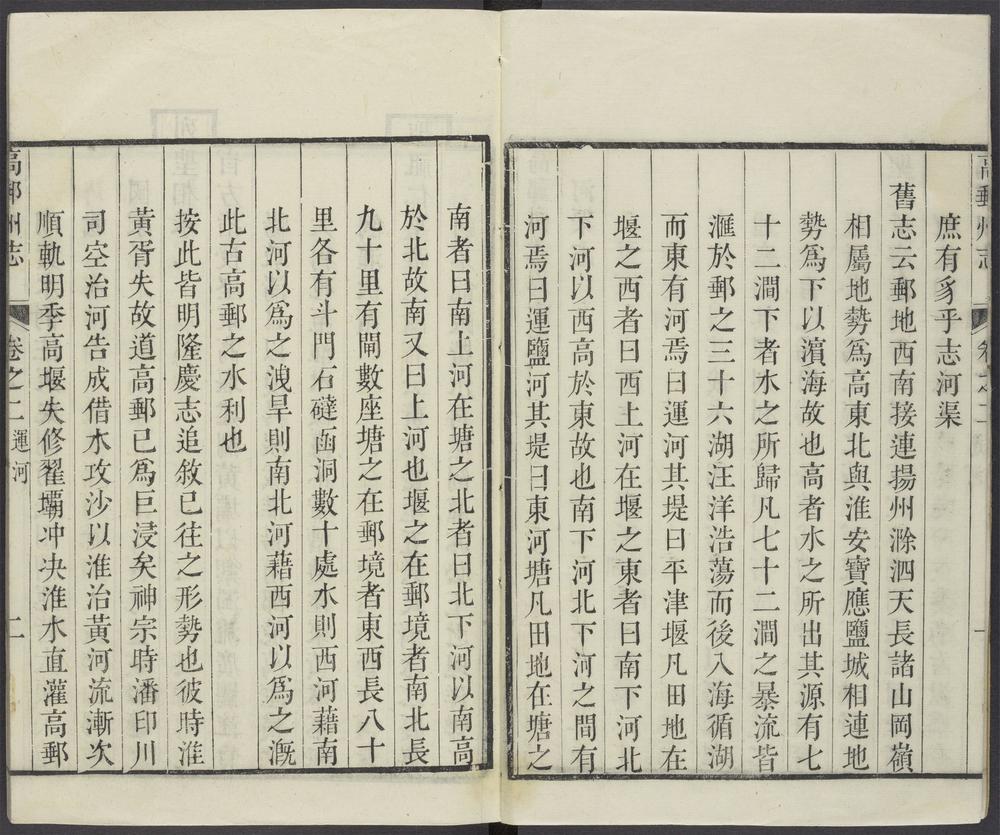 高郵州志
卷之二
庶有豸乎志河渠
舊志云郵地西南接連揚州滁泗天長諸山岡嶺
相屬地勢爲高東北與淮安寶應鹽城相連地
勢爲下以濵海故也高者水之所出其源有七
十二澗下者水之所歸凡七十二澗之暴流皆
滙於郵之三十六湖汪洋浩蕩而後入海循湖
而東有河焉曰運河其堤曰平津堰凡田地在
堰之西者曰西上河在堰之東者曰南下河北
下河以西高於東故也南下河北下河之間有
河焉曰運鹽河其堤曰東河塘凡田地在塘之
南者曰南上河在塘之北者曰北下河以南高
於北故南又曰上河也堰之在郵境者南北長
九十里有閘數座塘之在郵境者東西長八十
里各有斗門石䃮函洞數十處水則西河藉南
北河以爲之洩旱則南北河藉西河以爲之漑
此古高郵之水利也
按此皆明隆慶志追敘已往之形勢也彼時淮
黃胥失故道高郵已爲巨浸矣神宗時潘印川
司空治河告成借水攻沙以淮治黃河流漸次
順軌明季高堰失修翟壩冲決淮水直灌高郵
高郵州志
卷之二 運河
二